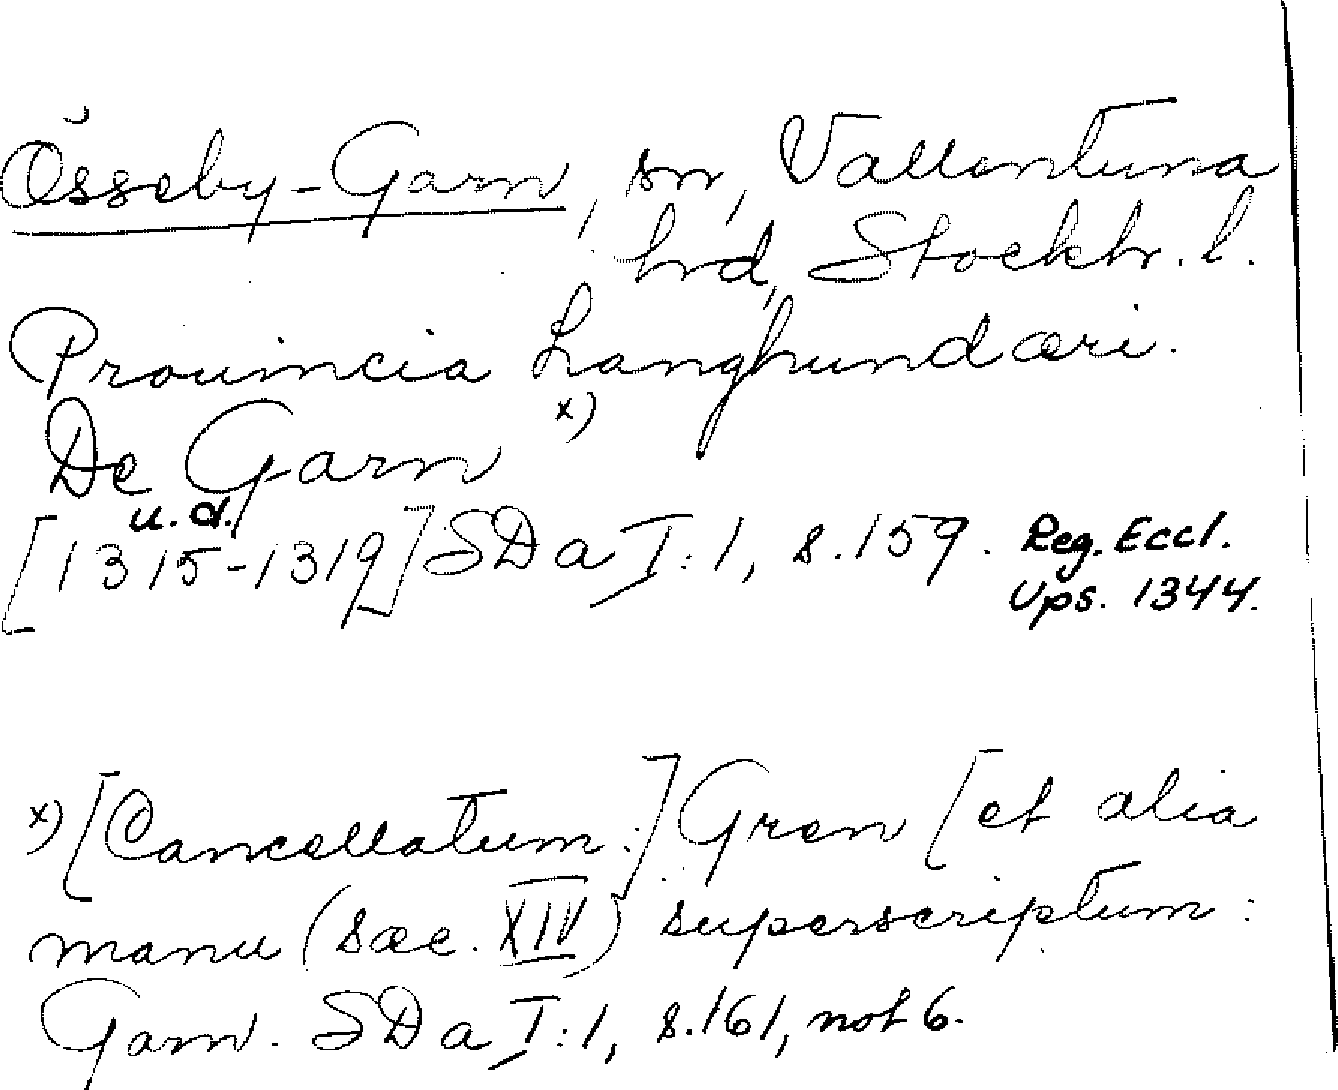 Össeby-Garn, sn, Vallentuna
hrd, Stockh. l.
Prouincia Langhundæri.
De Garn x)
u.d.
[1315-1319] SDa I:1, s.159. Reg. Eccl.
Ups. 1344.
x) [Cancellatum:] Gren [et alia
manu (sæc. XIV) superscriptum:
Garn. SDa I:1, s.161, not 6.